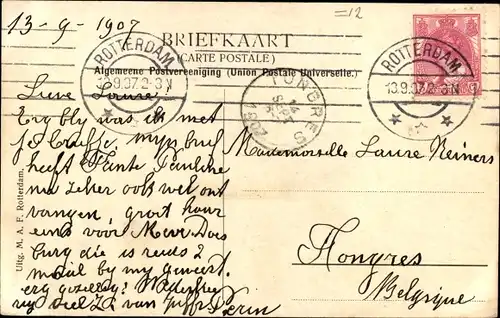 13-9-1907
=12
BRIEFKAART
(CARTE POSTALE)
Algemeene Postvereeniging (Union Postale Universelle.)
ROTTERDAM
13.9.07.2-3N
ROTTERDAM
13.9.07.2-3N
TONGRES
14
SEPT
1907
Lieve Laure,
Erg bly was ik met
je briefje, myn brief
heeft Tante Pauline
nu zeker ook wel ont
vangen, groet haar
eens voor
burg die is reeds 2
maal by my geweest
erg gezellig!
van
Mademoiselle Laure Reiners
Tongres
Belgique
Uitg. M. A. F. Rotterdam.